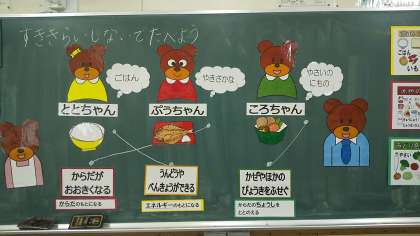 すききらいしないでたべよう
ごはん
やきざかな
やさいの
にもの
ととちゃん
ぷうちゃん
ころちゃん
からだが
おおきくなる
からだのもとになる
うんどうや
べんきょうができる
エネルギーのもとになる
かぜやほかの
びょうきをふせぐ
からだのちょうしを
ととのえる